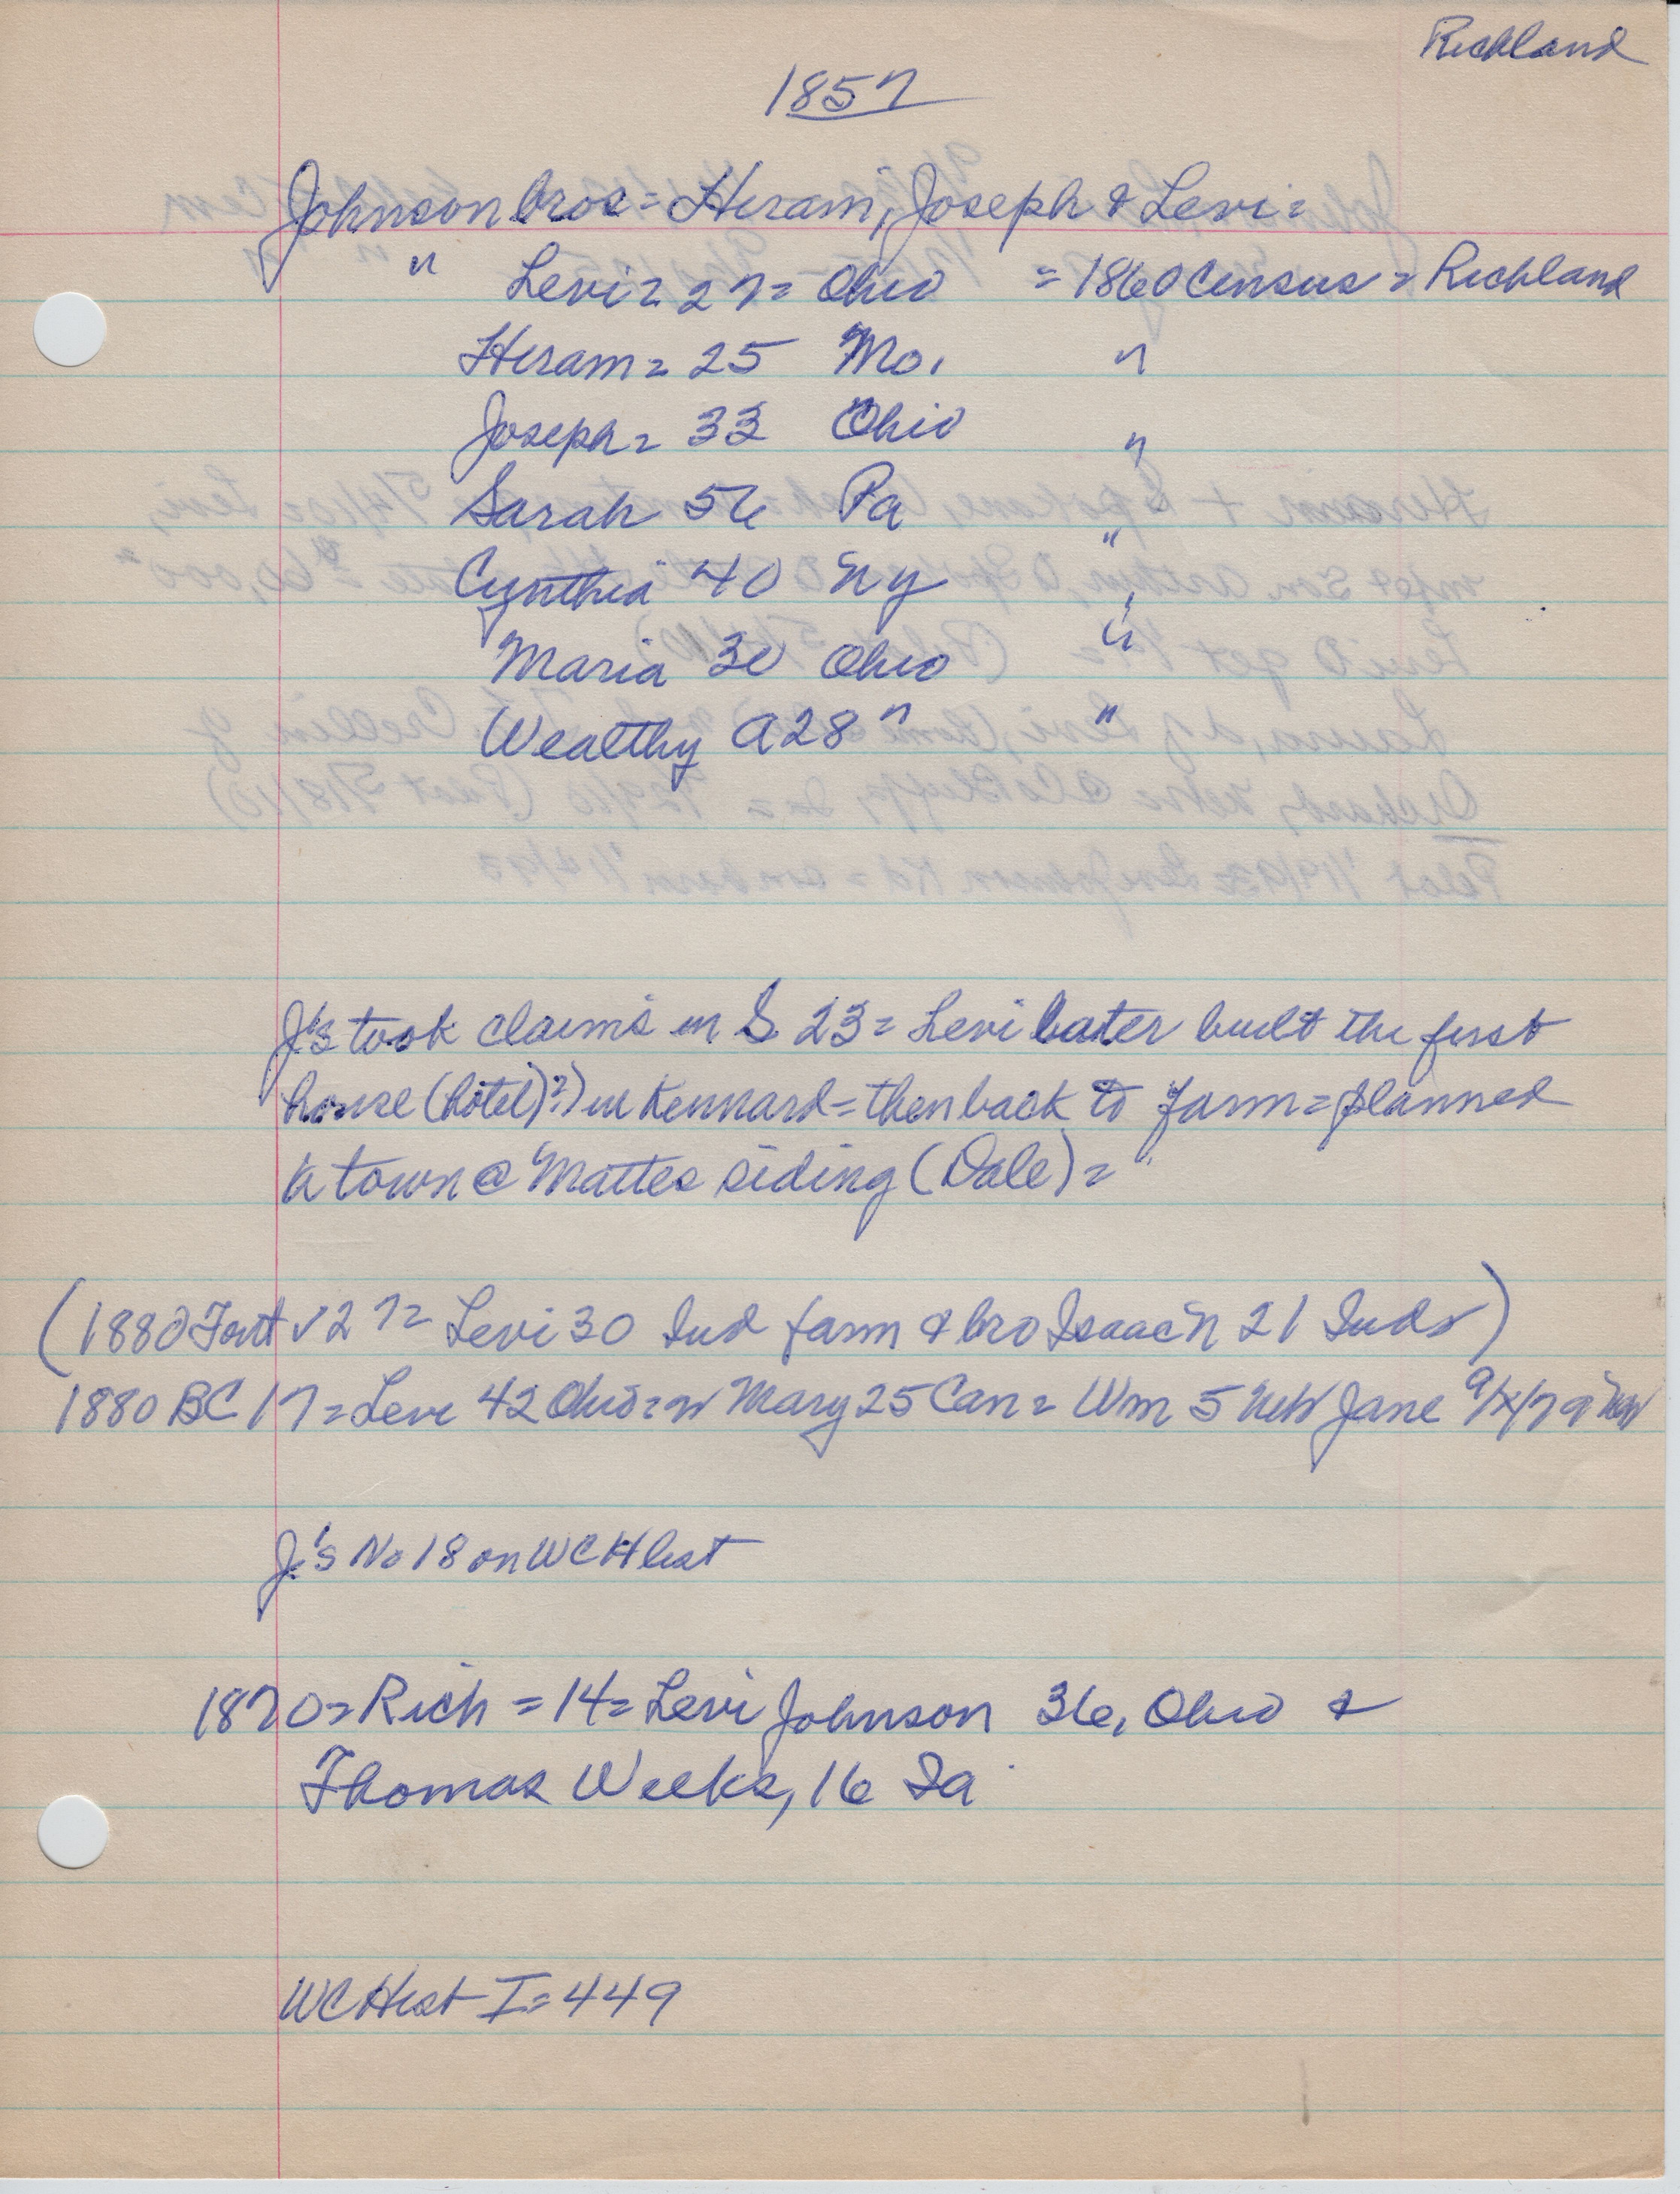 Richland
1857
Johnson bros = Hiram, Joseph & Levi =
" Levi = 27 = Ohio = 1860 Census = Richland
Hiram = 25 Mo. "
Joseph = 33 Ohio "
Sarah 56 Pa "
Cynthia 40 Ny "
Maria 30 Ohio "
Wealthy A 28 " "
J's took claims in S 23 = Levi later built the first
house (hotel)?) in Kennard = then back to farm = planned
a town @ Mattes siding (Dale) =
(1880 Font 27 = Levi 30 Ind farm & bro Isaac N 21 Ind)
1880 BC 17 = Levi 42 Ohio = w Mary 25 Can = Wm 5 Neb Jane 9/x/79 Neb
J's No 18 on WCH list
1870 = Rich = 14 = Levi Johnson 36, Ohio &
Thomas Weeks, 16 Ia
WC Hist I = 449